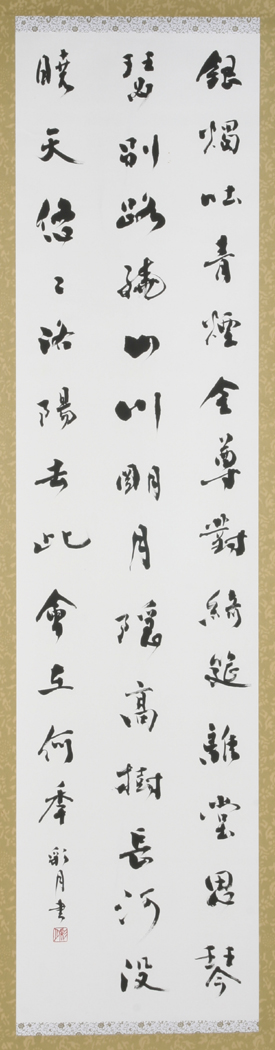 銀燭吐青煙金尊對綺筵離堂思琴
瑟別路繞山川明月隱高樹長河没
曉天悠々洛陽去此會在何年
彩月書